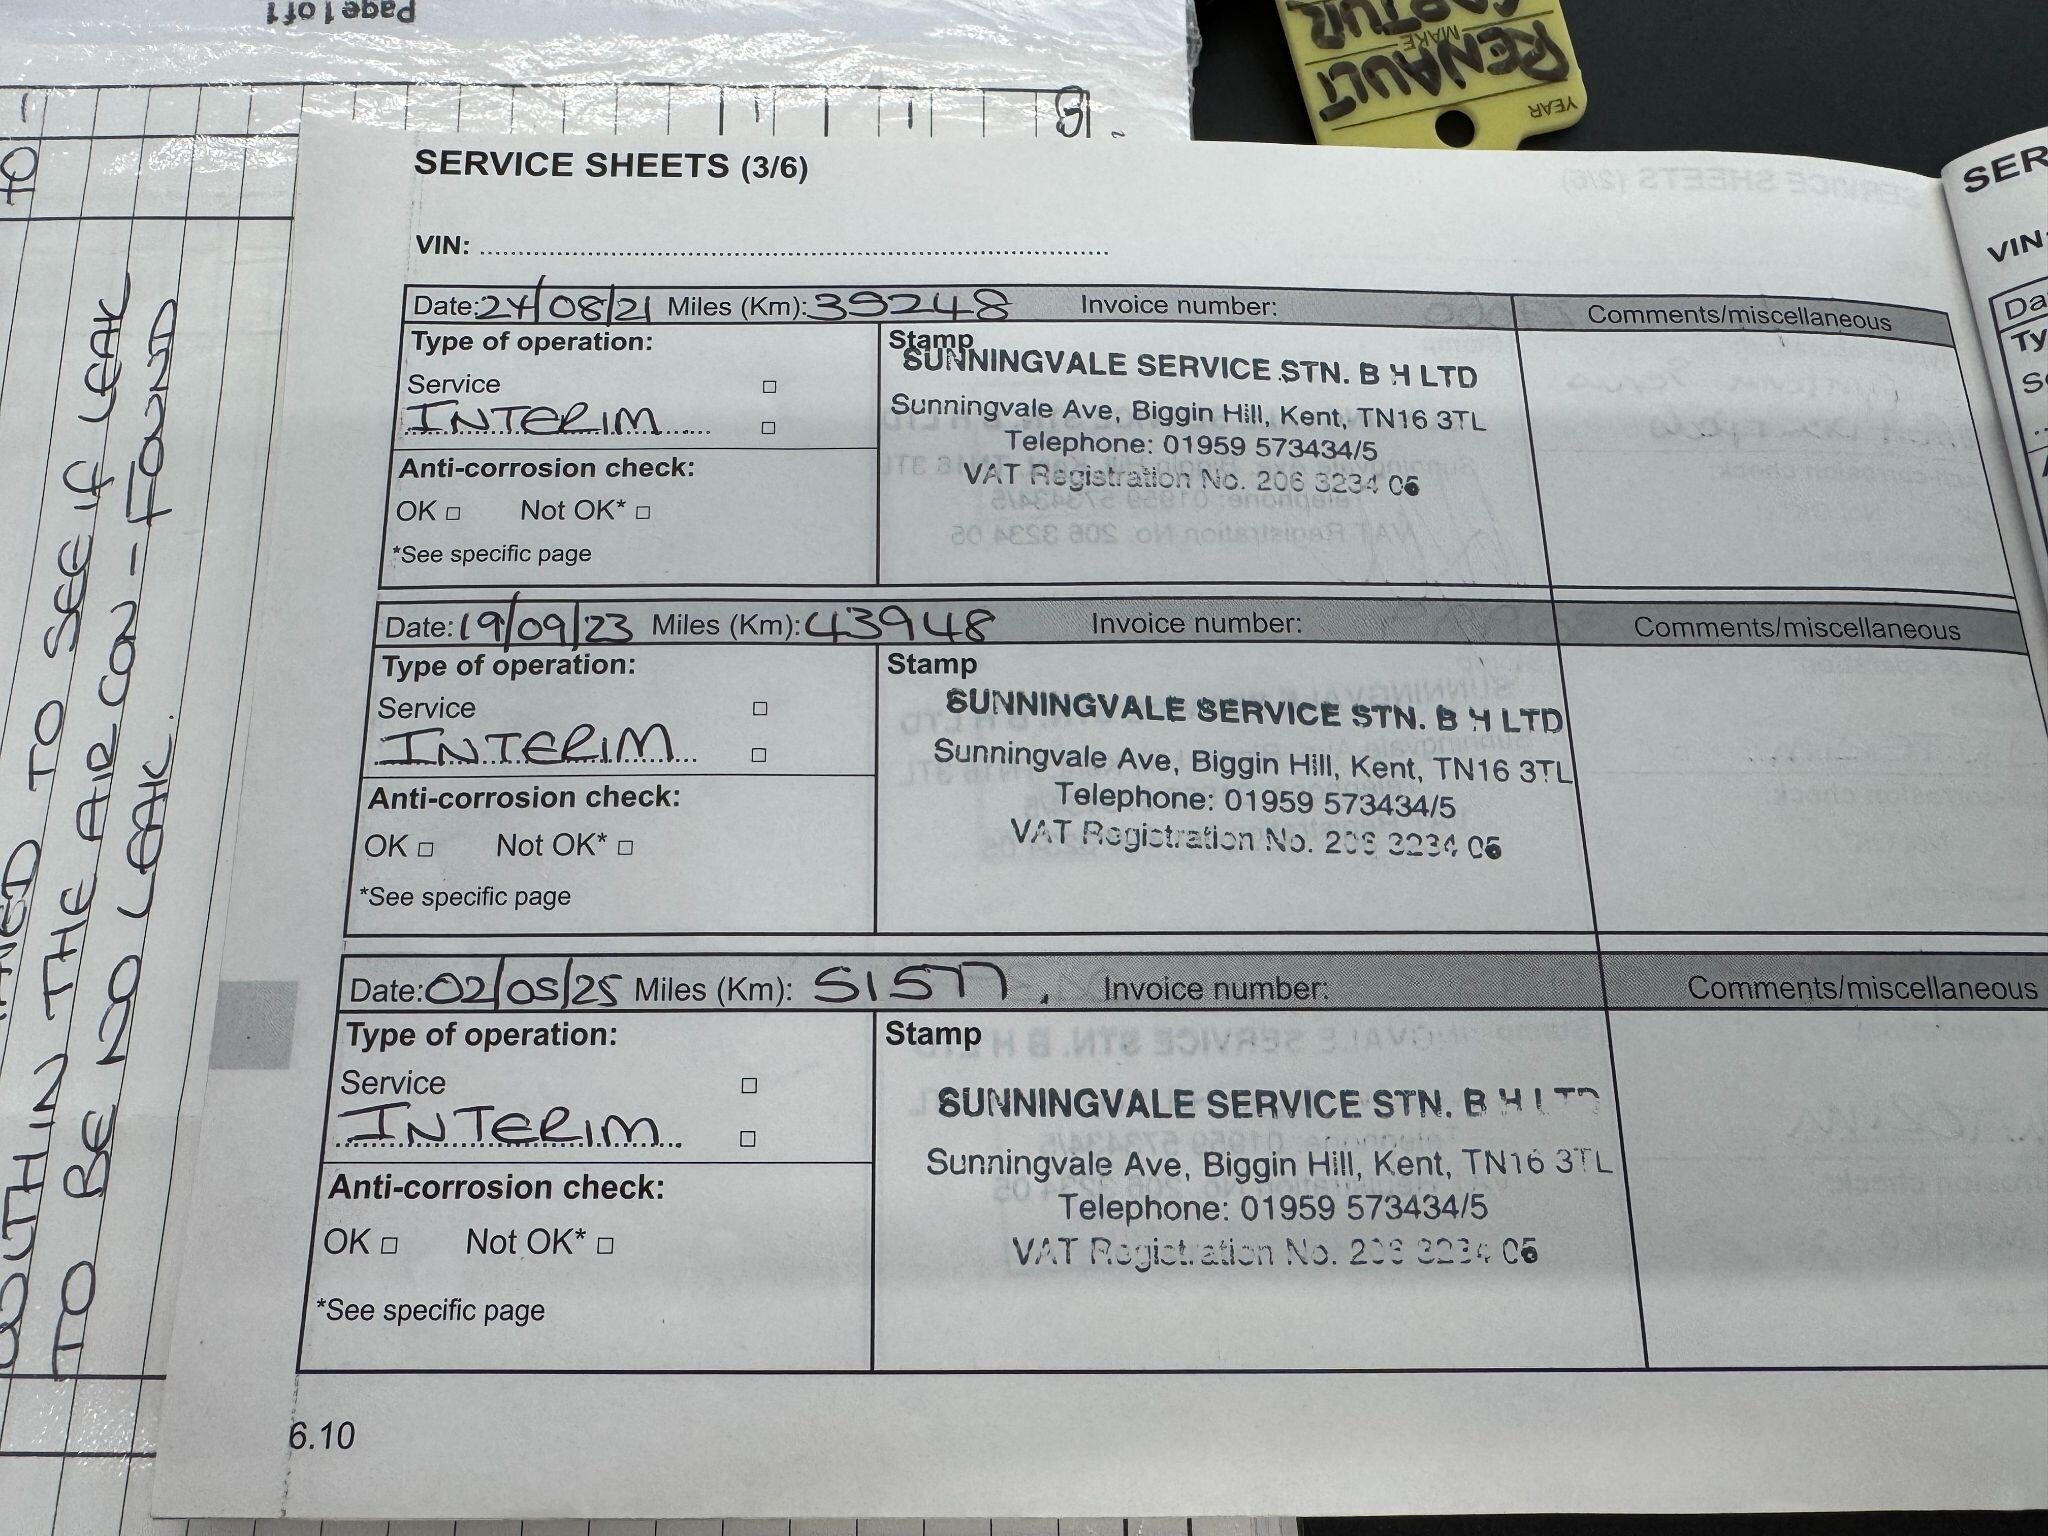 Page 1 of 1
RENAULT
CAPTUR
MAKE
YEAR
TO SEE IF LEAK
IN THE AIR CON - FOUND
TO BE NO LEAK.
SERVICE SHEETS (3/6)
VIN:
Date: 24/08/21 Miles (Km): 39248 Invoice number: Comments/miscellaneous
Type of operation:
Stamp
Service
INTERIM
SUNNINGVALE SERVICE STN. B H LTD
Sunningvale Ave, Biggin Hill, Kent, TN16 3TL
Telephone: 01959 573434/5
VAT Registration No. 206 3234 05
Anti-corrosion check:
OK Not OK*
*See specific page
Date: 19/09/23 Miles (Km): 43948 Invoice number: Comments/miscellaneous
Type of operation:
Stamp
Service
INTERIM
SUNNINGVALE SERVICE STN. B H LTD
Sunningvale Ave, Biggin Hill, Kent, TN16 3TL
Telephone: 01959 573434/5
VAT Registration No. 206 3234 05
Anti-corrosion check:
OK Not OK*
*See specific page
Date: 02/05/25 Miles (Km): 51577 Invoice number: Comments/miscellaneous
Type of operation:
Stamp
Service
INTERIM
SUNNINGVALE SERVICE STN. B H LTD
Sunningvale Ave, Biggin Hill, Kent, TN16 3TL
Telephone: 01959 573434/5
VAT Registration No. 206 3234 05
Anti-corrosion check:
OK Not OK*
*See specific page
6.10
SER
VIN: